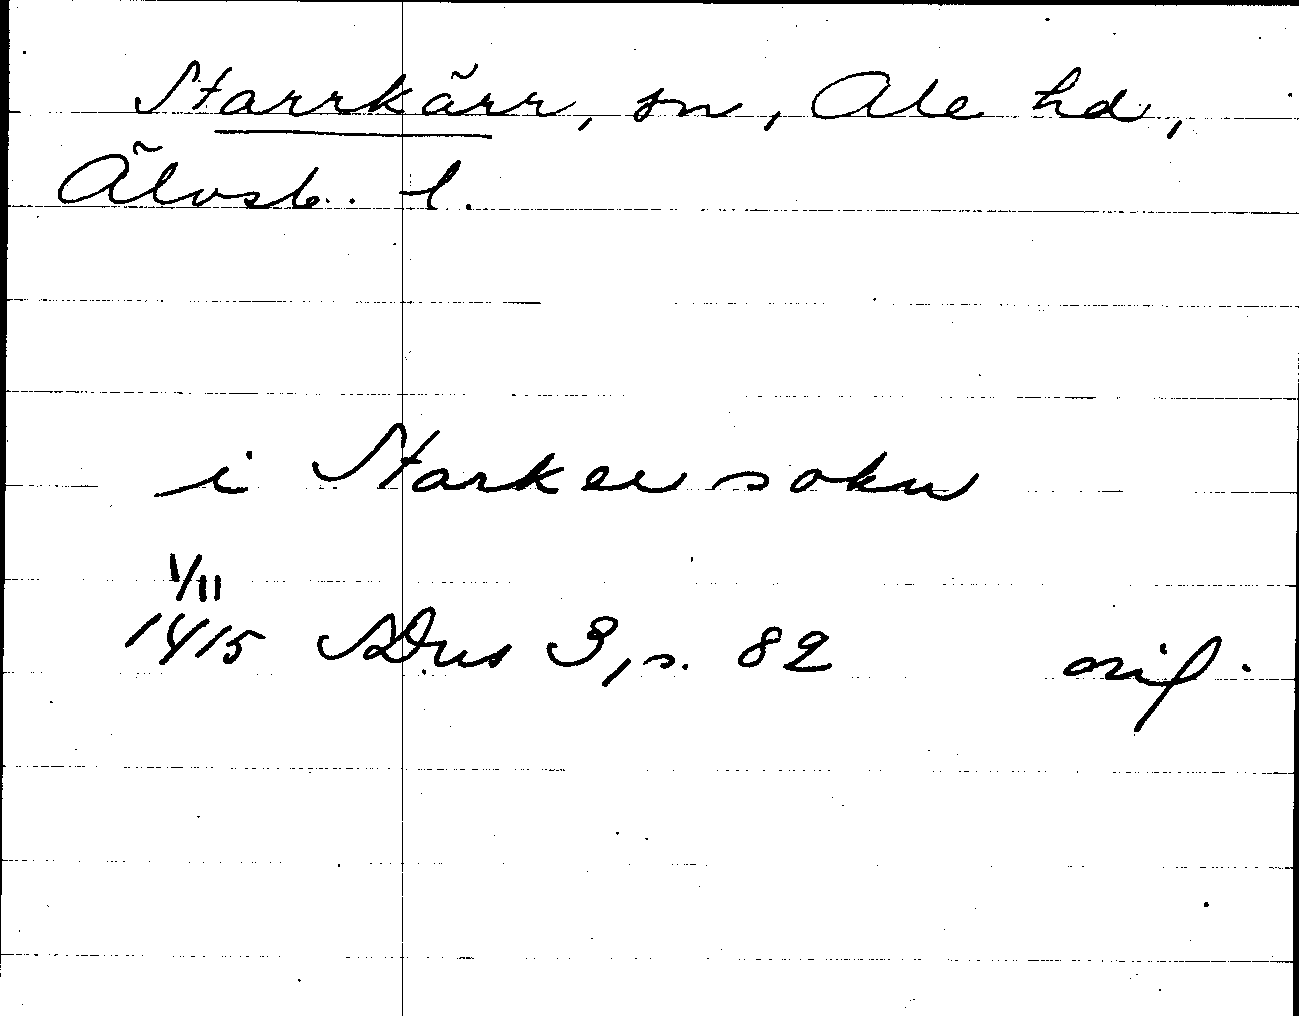 Starrkärr, sn, Ale hd,
Älvsb. l.
i Starker sokn
1/11
1415 SDns 3, s. 82 orig.